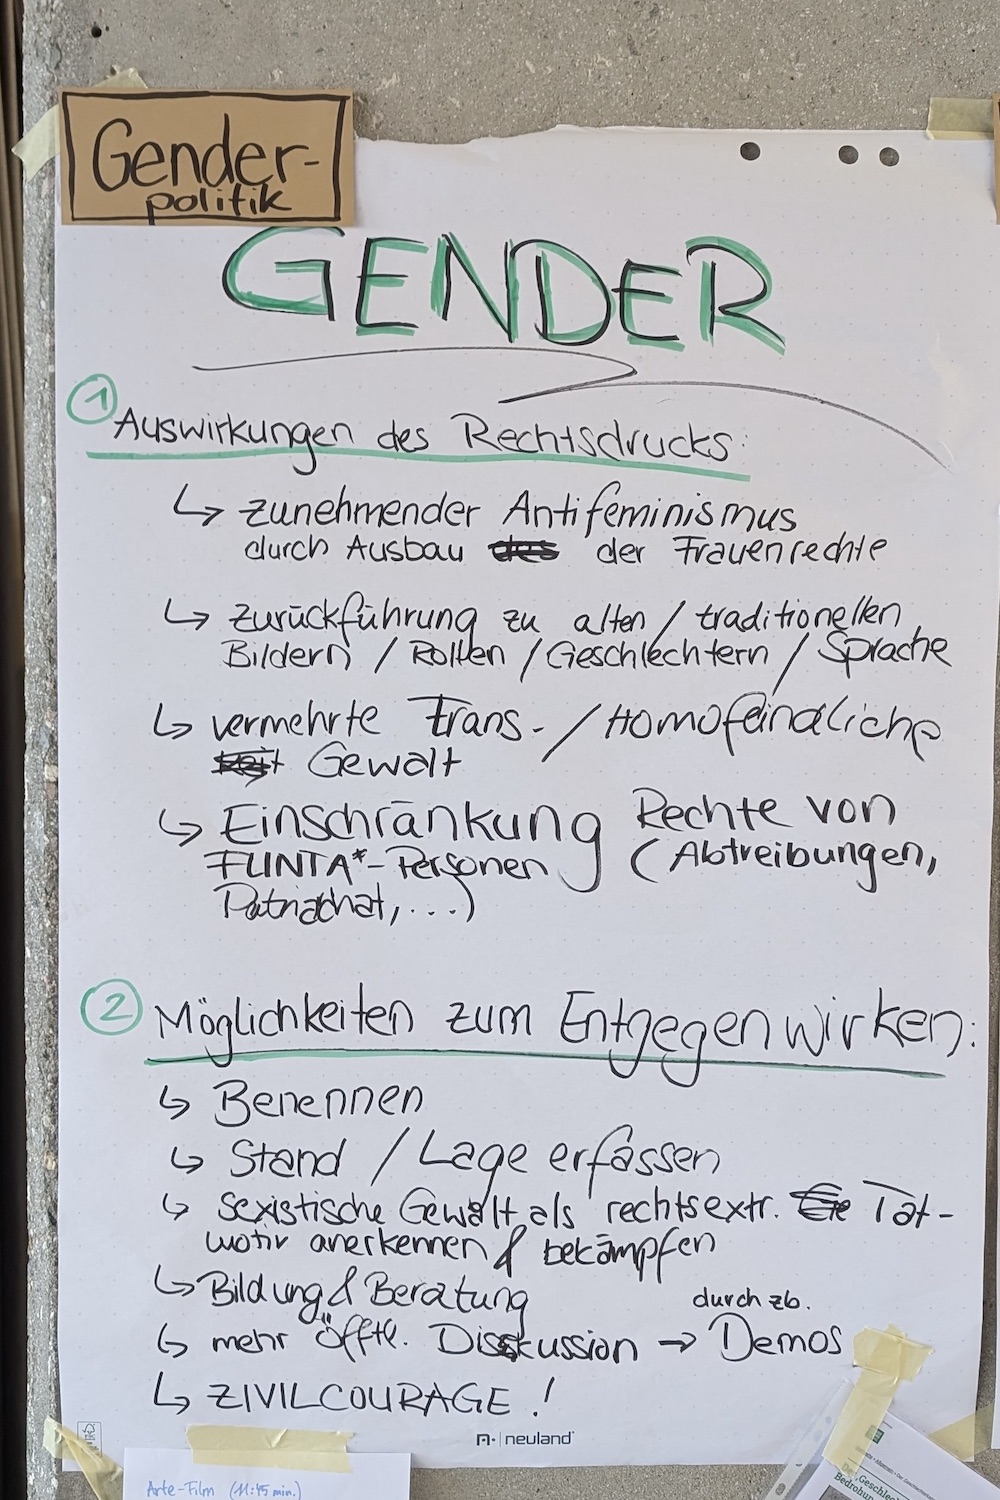 Gender-
politik
GENDER
1
Auswirkungen des Rechtsdrucks:
↳ zunehmender Antifeminismus
durch Ausbau der Frauenrechte
↳ zurückführung zu alten / traditionellen
Bildern / Rollen / Geschlechtern / Sprache
↳ vermehrte Trans- / Homofeindliche
Gewalt
↳ Einschränkung Rechte von
FLINTA*-Personen (Abtreibungen,
Patriachat, ...)
2 Möglichkeiten zum Entgegenwirken:
↳ Benennen
↳ Stand / Lage erfassen
↳ sexistische Gewalt als rechtsextr. Tat-
motiv anerkennen & bekämpfen
↳ Bildung & Beratung
durch zb.
↳ mehr öfftl. Diskussion → Demos
↳ ZIVILCOURAGE !
neuland
Arte-Film (11:45 min.)